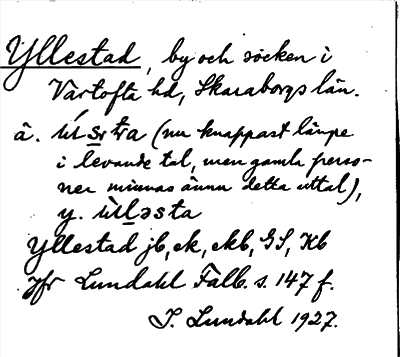 Yllestad, by och socken i
Vartofta hd, Skaraborgs län.
ä. (nu knappast länge
i levande tal, men gamla perso-
ner minnas ännu detta uttal),
y. ùlləsta
Yllestad jb, ek, ekb, GS, Kb
Jfr Lundahl Falb. s. 147 f.
I. Lundahl 1927.